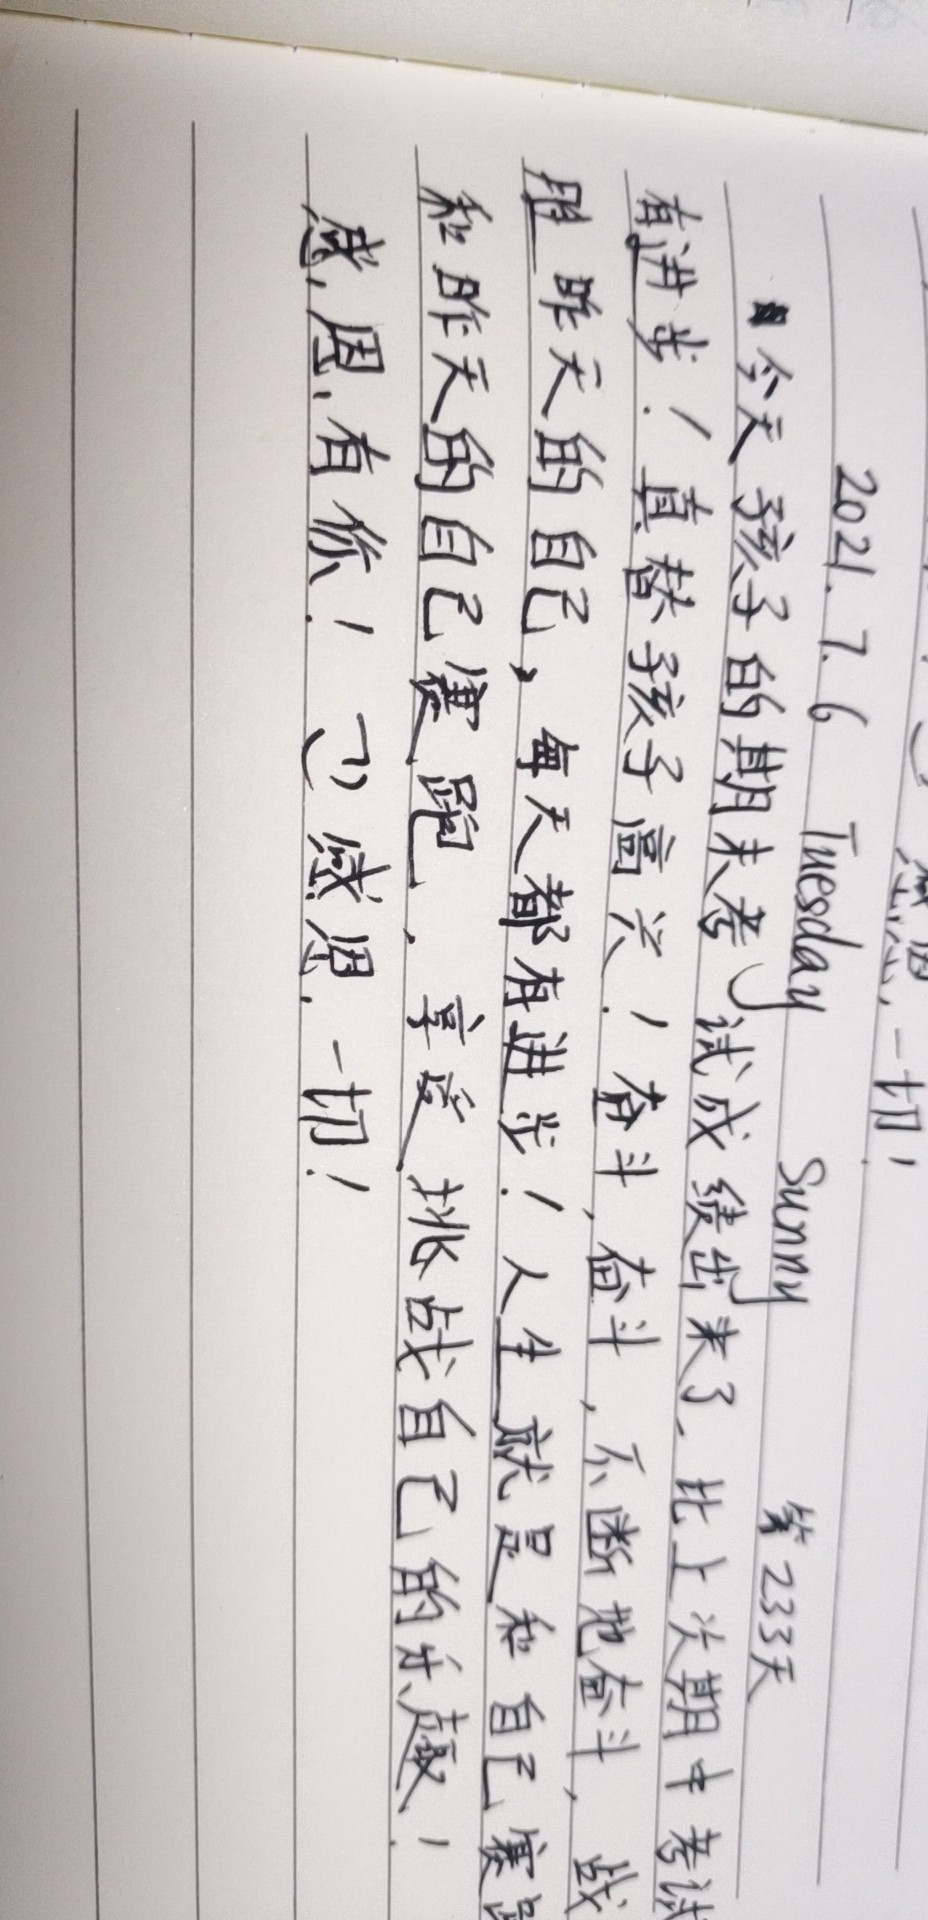 感恩一切!
2021.7.6 Tuesday Sunny 第233天
今天孩子的期末考试成绩出来了,比上次期中考试
有进步!真替孩子高兴!奋斗,奋斗,不断地奋斗,战
胜昨天的自己,每天都有进步!人生就是和自己赛跑
和昨天的自己赛跑,享受挑战自己的乐趣!
感恩有你!感恩一切!